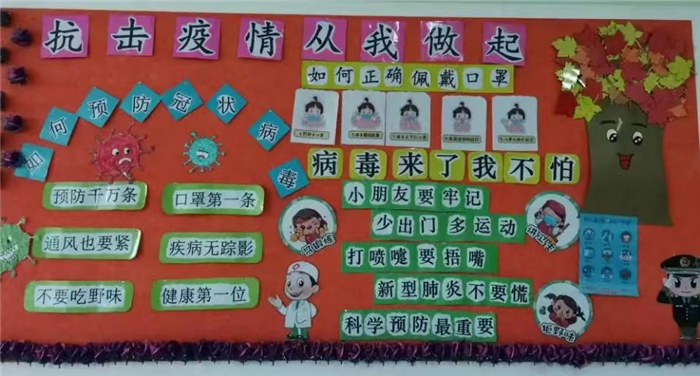 抗击疫情从我做起
如何正确佩戴口罩
如何预防冠状病毒
病毒来了我不怕
预防千万条
口罩第一条
通风也要紧
疾病无踪影
不要吃野味
健康第一位
小朋友要牢记
少出门多运动
打喷嚏要捂嘴
新型肺炎不要慌
科学预防最重要
拒野味